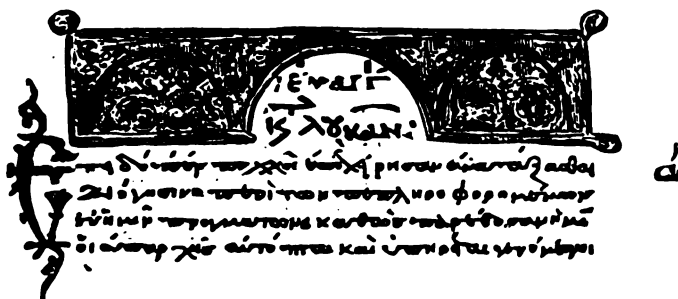 εὐαγγ
λουκαν
Ἐπειδήπερ πολλοὶ ἐπεχείρησαν ἀνατάξασθαι
διήγησιν περὶ τῶν πεπληροφορημένων
ἐν ἡμῖν πραγμάτων καθὼς παρέδοσαν ἡμῖ
οἱ ἀπαρχῆς αὐτόπται καὶ ὑπηρέται γενόμενοι